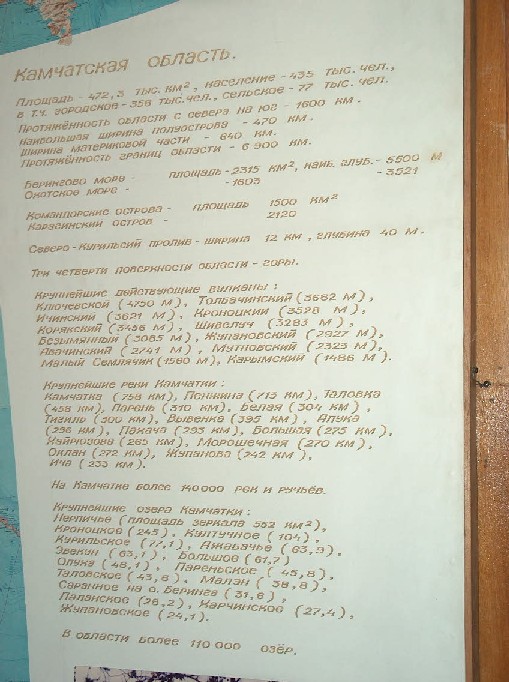 Камчатская область.
Площадь - 472,3 тыс. км², население - 435 тыс. чел.,
в т.ч. городское - 358 тыс. чел., сельское - 77 тыс. чел.
Протяжённость области с севера на юг - 1600 км.
Наибольшая ширина полуострова - 470 км.
Ширина материковой части - 640 км.
Протяжённость границ области - 6 900 км.
Берингово море - площадь - 2315 км², наиб. глуб. - 5500 м
Охотское море - - 1603 - 3521
Командорские острова - площадь 1500 км²
Карагинский остров - 2120
Северо-Курильский пролив - ширина 12 км, глубина 40 м.
Три четверти поверхности области - горы.
Крупнейшие действующие вулканы:
Ключевской (4750 м), Толбачинский (3682 м),
Ичинский (3621 м), Кроноцкий (3528 м),
Корякский (3456 м), Шивелуч (3283 м),
Безымянный (3085 м), Жупановский (2927 м),
Авачинский (2741 м), Мутновский (2323 м),
Малый Семлячик (1560 м), Карымский (1486 м).
Крупнейшие реки Камчатки:
Камчатка (758 км), Пенжина (713 км), Таловка
(458 км), Парень (310 км), Белая (304 км),
Тигиль (300 км), Вывенка (395 км), Апука
(296 км), Пахача (293 км), Большая (275 км),
Хайрюзова (265 км), Морошечная (270 км),
Оклан (272 км), Жупанова (242 км),
Ича (233 км).
На Камчатке более 140000 рек и ручьёв.
Крупнейшие озера Камчатки:
Нерпичье (площадь зеркала 552 км²),
Кроноцкое (245), Култучное (104),
Курильское (77,1), Ажабачье (63,9),
Эвекун (63,1), Большое (61,7)
Опуха (48,1), Пареньское (45,8),
Таловское (43,6), Малэн (38,8),
Саранное на о. Беринга (31,6),
Паланское (28,2), Харчинское (27,4),
Жупановское (24,1).
В области более 110 000 озёр.